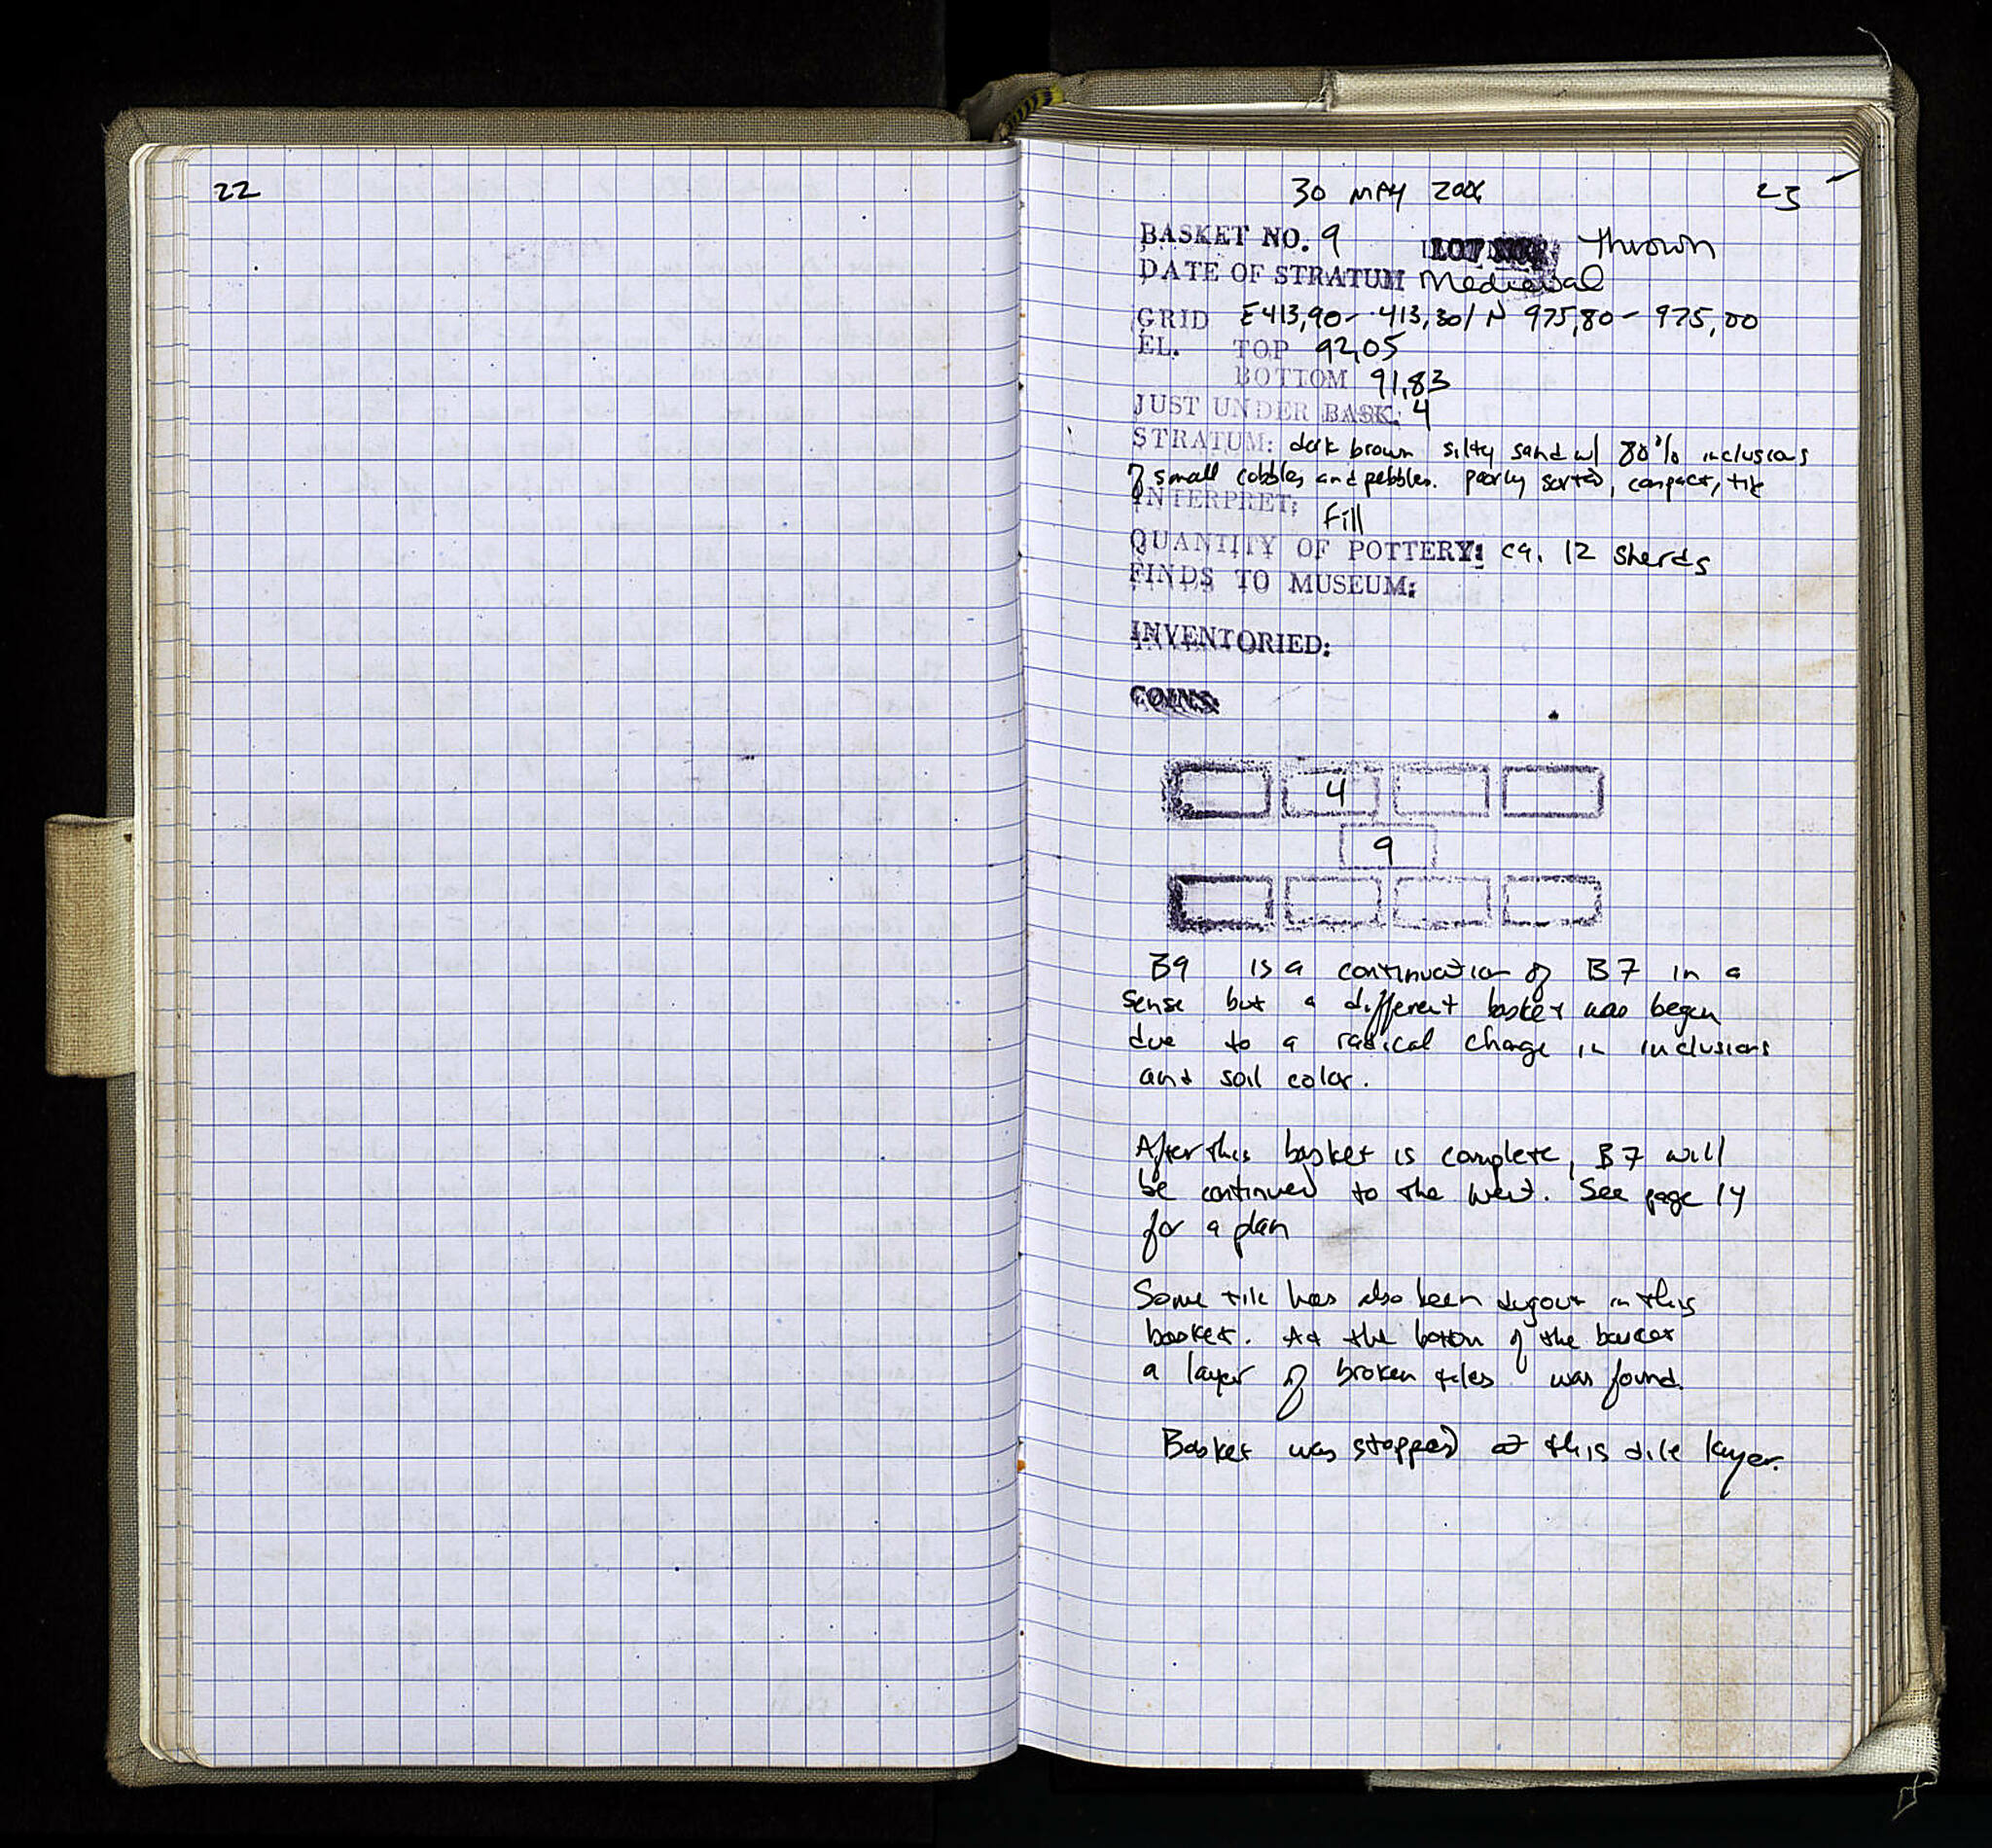 22
30 MAY 2006 23
BASKET NO. 9 LOT NO. Thrown
DATE OF STRATUM Medieval
GRID E413,90 - 413,30 / N 975,80 - 975,00
EL. TOP 92,05
BOTTOM 91,83
JUST UNDER BASK: 4
STRATUM: dark brown silty sand w/ 80% inclusions
of small cobbles and pebbles. poorly sorted, compact, tile
INTERPRET: Fill
QUANTITY OF POTTERY: ca. 12 sherds
FINDS TO MUSEUM:
INVENTORIED:
COINS:
4
9
B9 is a continuation of B7 in a
sense but a different basket was began
due to a radical change in inclusions
and soil color.
After this basket is complete, B7 will
be continued to the west. See page 14
for a plan
Some tile has also been dug out in this
basket. At the bottom of the basket
a layer of broken tiles was found.
Basket was stopped at this tile layer.